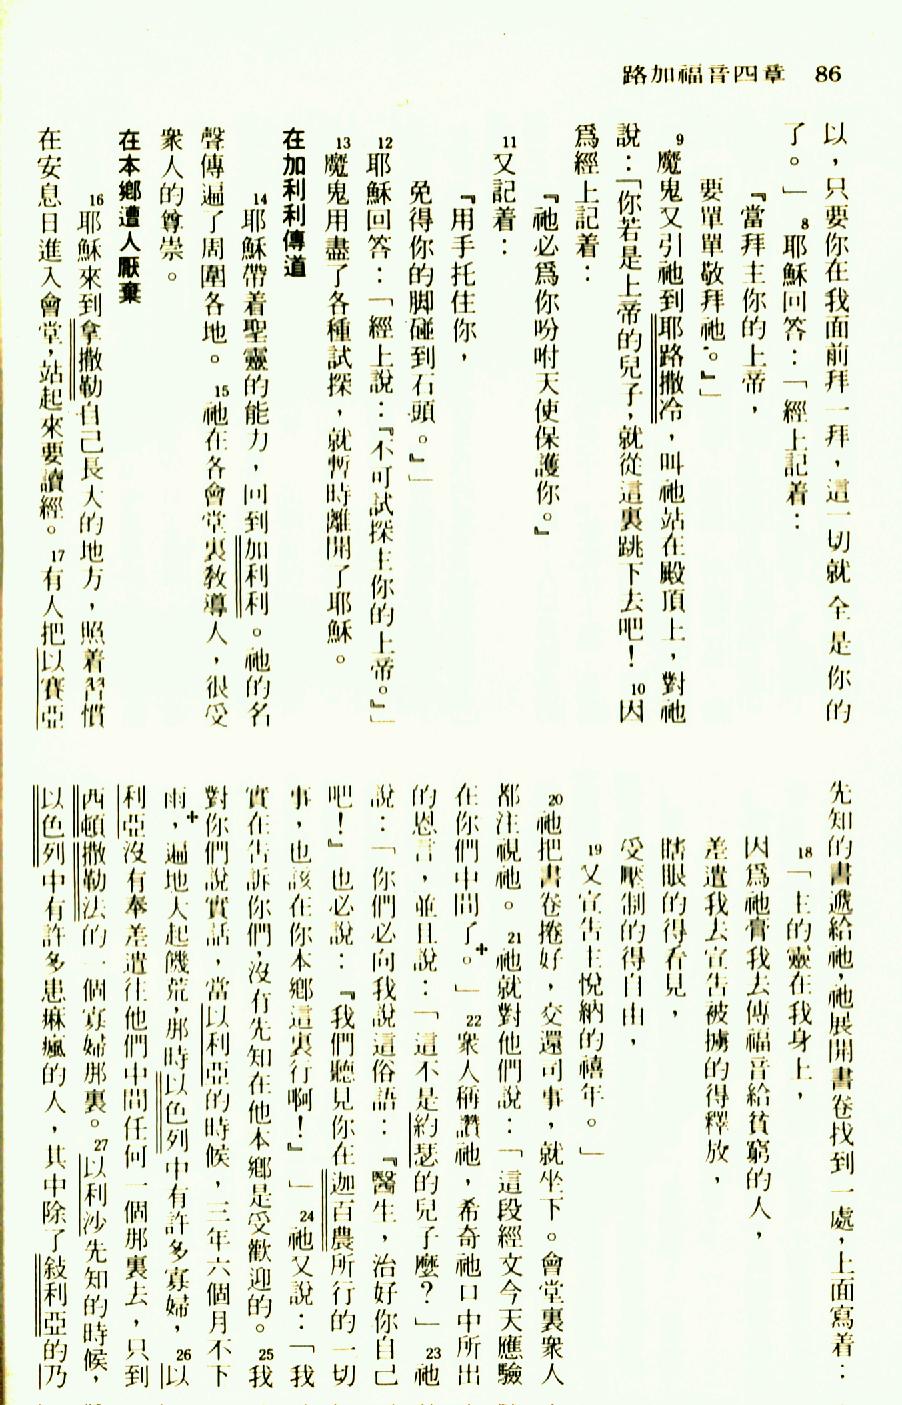 路加福音四章　86
以，只要你在我面前拜一拜，這一切就全是你的
了。」8耶穌回答：「經上記着：
『當拜主你的上帝，
要單單敬拜祂。』」
9魔鬼又引祂到耶路撒冷，叫祂站在殿頂上，對祂
說：「你若是上帝的兒子，就從這裏跳下去吧！10因
爲經上記着：
『祂必爲你吩咐天使保護你。』
11又記着：
『用手托住你，
免得你的脚碰到石頭。』」
12耶穌回答：「經上說：『不可試探主你的上帝。』」
13魔鬼用盡了各種試探，就暫時離開了耶穌。
在加利利傳道
14耶穌帶着聖靈的能力，回到加利利。祂的名
聲傳遍了周圍各地。15祂在各會堂裏敎導人，很受
衆人的尊崇。
在本鄕遭人厭棄
16耶穌來到拿撒勒自己長大的地方，照着習慣
在安息日進入會堂，站起來要讀經。17有人把以賽亞
先知的書遞給祂，祂展開書卷找到一處，上面寫着：
18「主的靈在我身上，
因爲祂膏我去傳福音給貧窮的人，
差遣我去宣告被擄的得釋放，
瞎眼的得看見，
受壓制的得自由，
19又宣告主悅納的禧年。」
20祂把書卷捲好，交還司事，就坐下。會堂裏衆人
都注視祂。21祂就對他們說：「這段經文今天應驗
在你們中間了。」22衆人稱讚祂，希奇祂口中所出
的恩言，並且說：「這不是約瑟的兒子麼？」23祂
說：「你們必向我說這俗語：『醫生，治好你自己
吧！』也必說：『我們聽見你在迦百農所行的一切
事，也該在你本鄕這裏行啊！』」24祂又說：「我
實在告訴你們，沒有先知在他本鄕是受歡迎的。25我
對你們說實話，當以利亞的時候，三年六個月不下
雨，遍地大起饑荒，那時以色列中有許多寡婦，26以
利亞沒有奉差遣往他們中間任何一個那裏去，只到
西頓撒勒法的一個寡婦那裏。27以利沙先知的時候，
以色列中有許多患痲瘋的人，其中除了敍利亞的乃